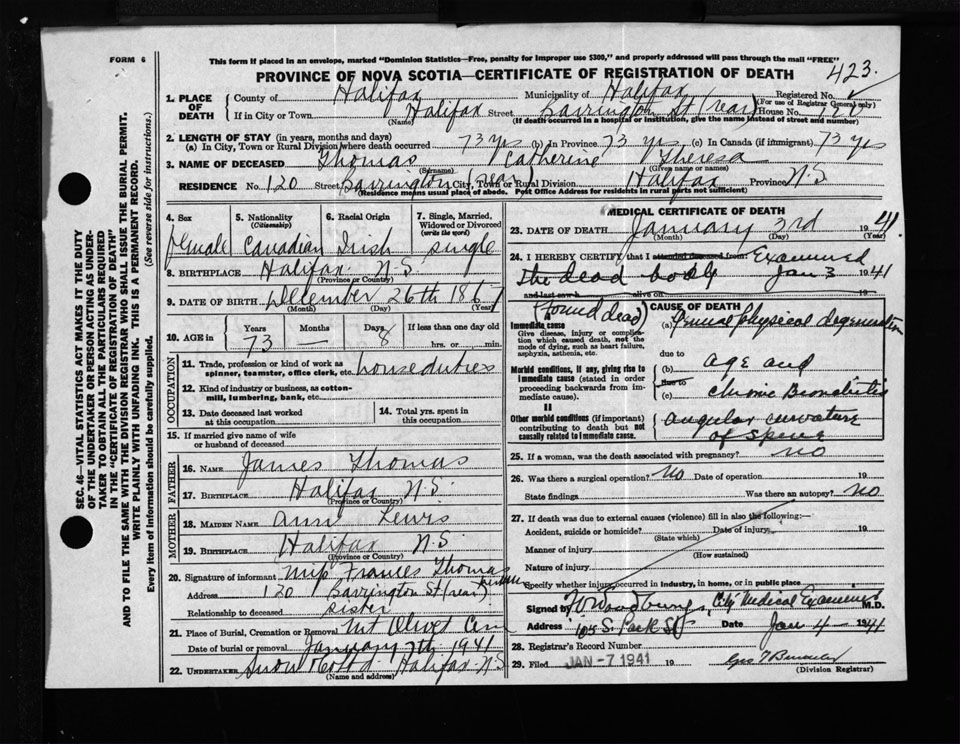 FORM 6
This form if placed in an envelope, marked "Dominion Statistics—Free, penalty for improper use $300," and properly addressed will pass through the mail "FREE"
PROVINCE OF NOVA SCOTIA—CERTIFICATE OF REGISTRATION OF DEATH
423.
1. PLACE OF DEATH
County of Halifax Municipality of Halifax Registered No.
(For use of Registrar General only)
If in City or Town Halifax Street Barrington St (rear) House No. 120
(Name) (If death occurred in a hospital or institution, give the name instead of street and number)
2. LENGTH OF STAY (in years, months and days)
(a) In City, Town or Rural Division where death occurred 73 yrs (b) In Province 73 yrs (c) In Canada (if immigrant) 73 yrs
3. NAME OF DECEASED Thomas Catherine Theresa
(Surname) (Given name or names)
RESIDENCE No. 120 Street Barrington (rear) City, Town or Rural Division Halifax Province N.S
(Residence means usual place of abode. Post Office Address for residents in rural parts not sufficient)
4. Sex
female
5. Nationality
(Citizenship)
Canadian
6. Racial Origin
Irish
7. Single, Married, Widowed or Divorced
(write the word)
single
8. BIRTHPLACE Halifax N.S.
(Province or Country)
9. DATE OF BIRTH December 26th 1867
(Month) (Day) (Year)
10. AGE in
Years Months Days If less than one day old
73 — 8 hrs. or min.
OCCUPATION
11. Trade, profession or kind of work as spinner, teamster, office clerk, etc. house duties
12. Kind of industry or business, as cotton-mill, lumbering, bank, etc.
13. Date deceased last worked at this occupation
14. Total yrs. spent in this occupation
15. If married give name of wife or husband of deceased
FATHER
16. NAME James Thomas
17. BIRTHPLACE Halifax N.S.
(Province or Country)
MOTHER
18. MAIDEN NAME Ann Lewis
19. BIRTHPLACE Halifax N.S
(Province or Country)
20. Signature of informant Miss Frances Thomas
Address 120 Barrington St (rear)
Relationship to deceased sister
21. Place of Burial, Cremation or Removal Mt Olivet Cem
Date of burial or removal January 7th 1941
22. UNDERTAKER Snow & Co Ltd. Halifax N.S
(Name and address)
MEDICAL CERTIFICATE OF DEATH
23. DATE OF DEATH January 3rd 1941
(Month) (Day) (Year)
24. I HEREBY CERTIFY that I attended deceased from: Examined
the dead body Jan 3 1941
and last saw h alive on
(found dead)
CAUSE OF DEATH
Immediate cause
Give disease, injury or complication which caused death, not the mode of dying, such as heart failure, asphyxia, asthenia, etc.
(a) General physical degeneration
due to
Morbid conditions, if any, giving rise to immediate cause (stated in order proceeding backwards from immediate cause).
(b) age and
due to
(c) chronic Bronchitis
II
Other morbid conditions (if important) contributing to death but not causally related to immediate cause.
angular curvature
of spine
25. If a woman, was the death associated with pregnancy? no
26. Was there a surgical operation? no Date of operation 19
State findings Was there an autopsy? no
27. If death was due to external causes (violence) fill in also the following:—
Accident, suicide or homicide? Date of injury 19
(State which)
Manner of injury
(How sustained)
Nature of injury
Specify whether injury occurred in industry, in home, or in public place
Signed by City Medical Examiner M.D.
Address 105 S. Park St Date Jan 4 — 1941
28. Registrar's Record Number
29. Filed JAN -7 1941 19
(Division Registrar)
SEC. 46—VITAL STATISTICS ACT MAKES IT THE DUTY
OF THE UNDERTAKER OR PERSON ACTING AS UNDERTAKER
TO OBTAIN ALL THE PARTICULARS REQUIRED
IN THE "CERTIFICATE OF REGISTRATION OF DEATH"
AND TO FILE THE SAME WITH THE DIVISION REGISTRAR WHO SHALL ISSUE THE BURIAL PERMIT.
WRITE PLAINLY WITH UNFADING INK. THIS IS A PERMANENT RECORD.
Every item of information should be carefully supplied. (See reverse side for instructions.)